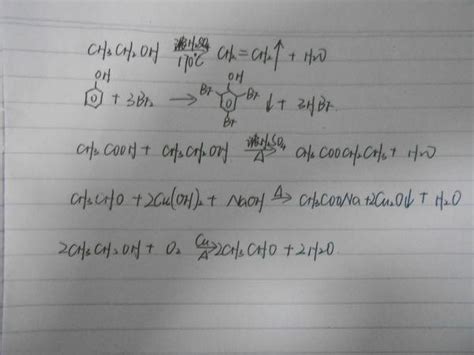 CH₃CH₂OH 浓H₂SO₄ 170℃ → CH₂=CH₂↑ + H₂O
OH + 3Br₂ → Br OH Br Br ↓ + 3HBr.
CH₃COOH + CH₃CH₂OH 浓H₂SO₄ △ → CH₃COOCH₂CH₃ + H₂O
CH₃CHO + 2Cu(OH)₂ + NaOH △ → CH₃COONa + 2Cu₂O↓ + H₂O
2CH₃CH₂OH + O₂ Cu △ → 2CH₃CHO + 2H₂O.